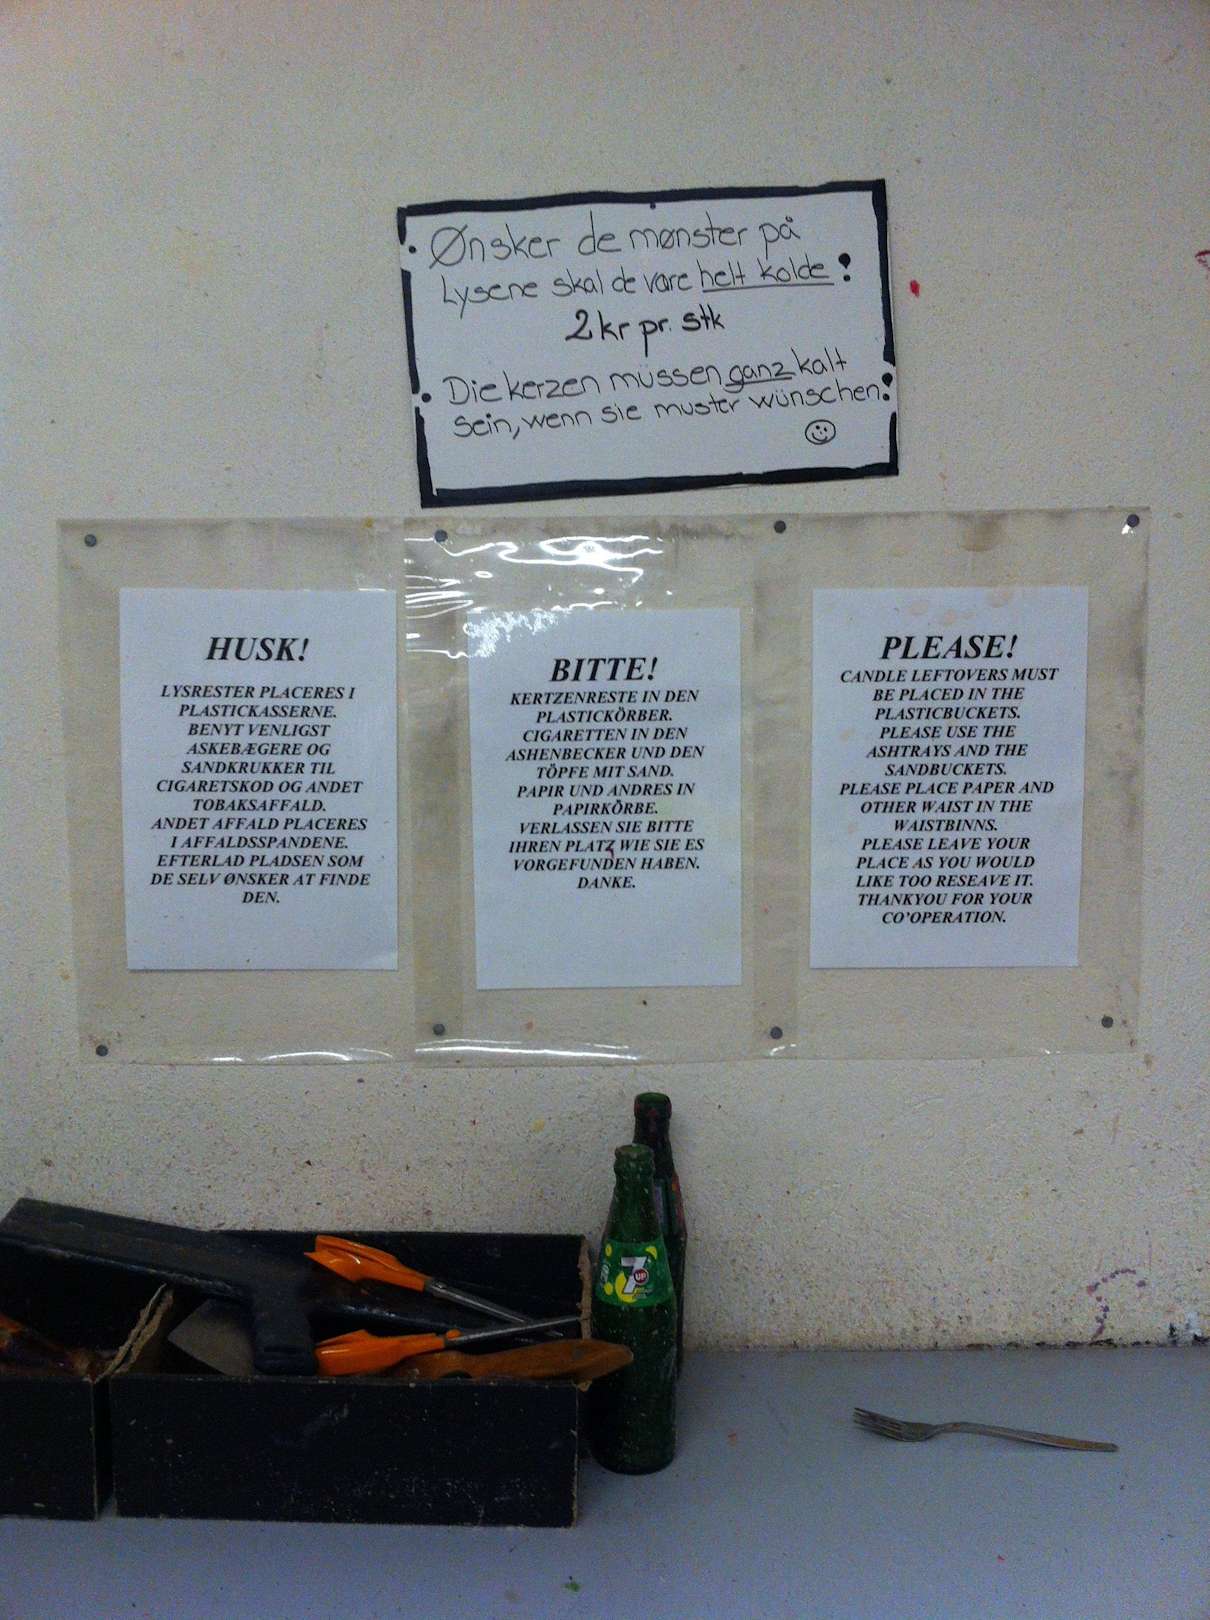 Ønsker de mønster på
Lysene skal de være helt kolde!
2 kr pr. stk
Die kerzen müssen ganz kalt
sein, wenn sie muster wünschen!
HUSK!
LYSRESTER PLACERES I
PLASTICKASSERNE.
BENYT VENLIGST
ASKEBÆGERE OG
SANDKRUKKER TIL
CIGARETSKOD OG ANDET
TOBAKSAFFALD.
ANDET AFFALD PLACERES
I AFFALDSSPANDENE.
EFTERLAD PLADSEN SOM
DE SELV ØNSKER AT FINDE
DEN.
BITTE!
KERTZENRESTE IN DEN
PLASTICKÖRBER.
CIGARETTEN IN DEN
ASHENBECKER UND DEN
TÖPFE MIT SAND.
PAPIR UND ANDRES IN
PAPIRKÖRBE.
VERLASSEN SIE BITTE
IHREN PLATZ WIE SIE ES
VORGEFUNDEN HABEN.
DANKE.
PLEASE!
CANDLE LEFTOVERS MUST
BE PLACED IN THE
PLASTICBUCKETS.
PLEASE USE THE
ASHTRAYS AND THE
SANDBUCKETS.
PLEASE PLACE PAPER AND
OTHER WAIST IN THE
WAISTBINNS.
PLEASE LEAVE YOUR
PLACE AS YOU WOULD
LIKE TOO RESEAVE IT.
THANKYOU FOR YOUR
CO'OPERATION.
7UP